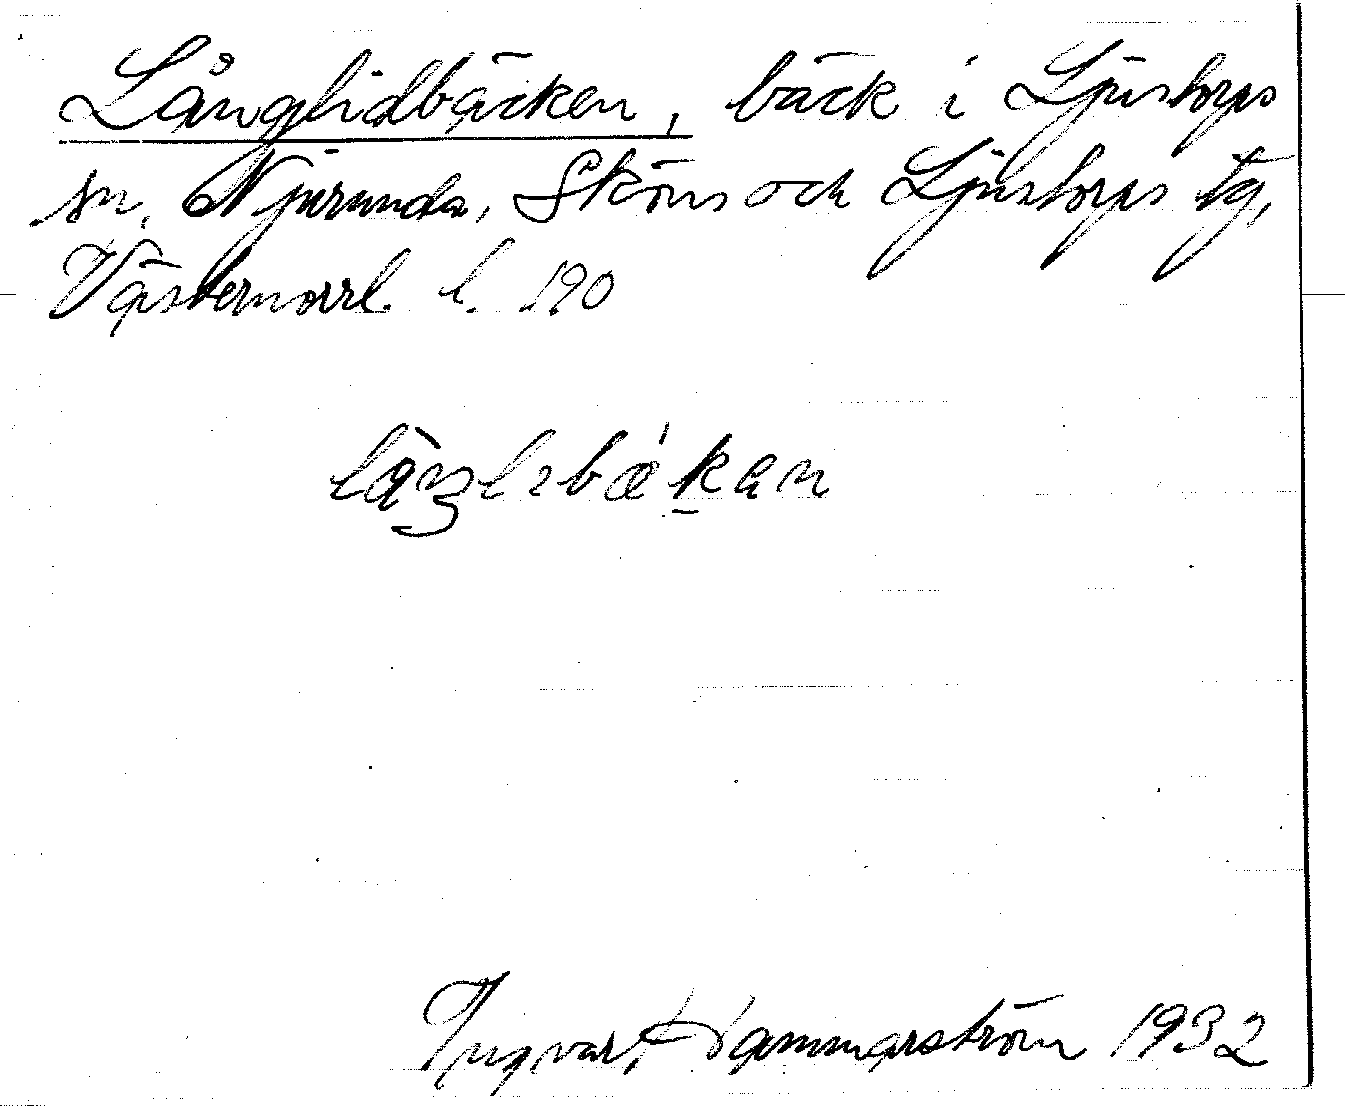 Långlidbäcken, bäck i Ljustorps
sn, Njurunda, Sköns och Ljustorps tg,
Västernorrl. l. 190
Ingvar Hammarström 1932